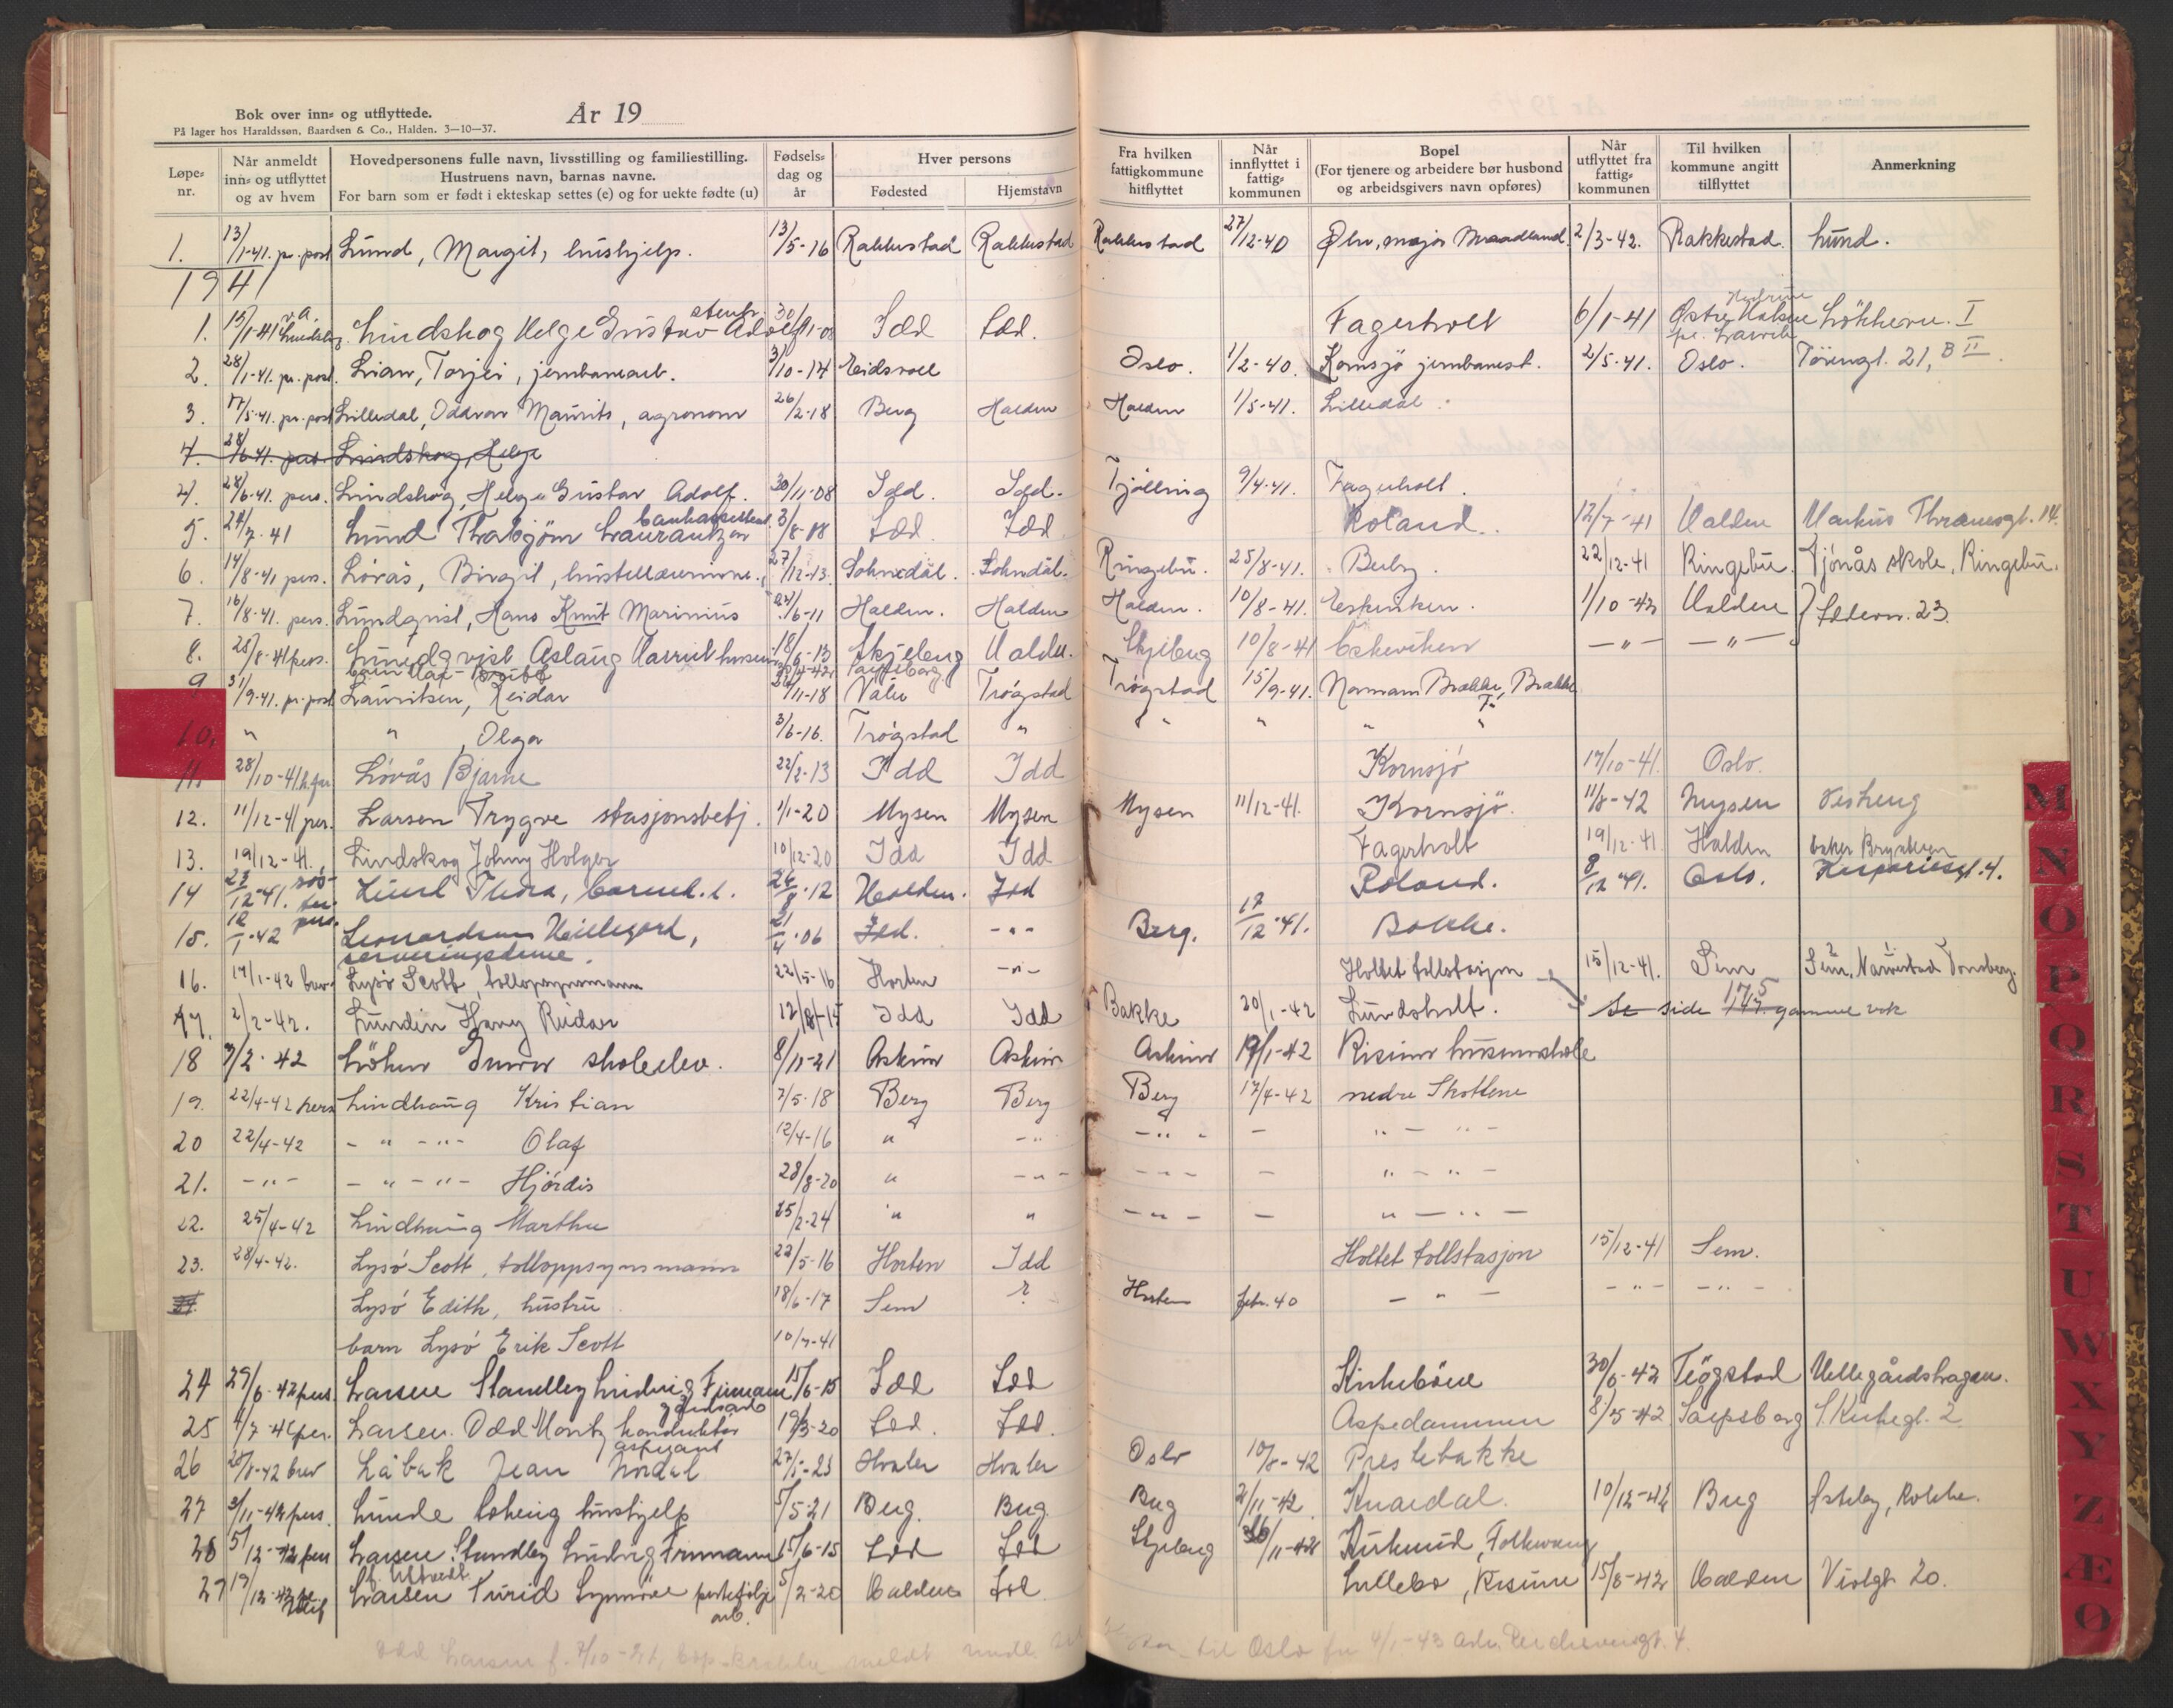 Bok over inn- og utflyttede.
På lager hos Haraldssøn, Baardsen & Co., Halden. 3—10—37.
År 19
Løpe-nr. | Når anmeldt inn- og utflyttet og av hvem | Hovedpersonens fulle navn, livsstilling og familiestilling. Hustruens navn, barnas navne. For barn som er født i ekteskap settes (e) og for uekte fødte (u) | Fødsels-dag og år | Hver persons Fødested | Hjemstavn | Fra hvilken fattigkommune hitflyttet | Når innflyttet i fattig-kommunen | Bopel (For tjenere og arbeidere bør husbond og arbeidsgivers navn opføres) | Når utflyttet fra fattig-kommunen | Til hvilken kommune angitt tilflyttet | Anmerkning
1. 13/1-41. pr. post Lund, Margit, hushjelp. 13/5-16 Rakkestad Rakkestad Rakkestad 27/12-40 major 2/3-42. Rakkestad. Lund.
1941
1. 15/1-41 Lindskog Helge Gustav Adolf 30/11-08 Idd Idd. Fagerholt 6/1-41 Østre Halsen pr. Larvik Løkkevn. I
2. 28/1-41. pr. post. Lian, Torjei, jernbanearb. 3/10-14 Eidsvoll Oslo. 1/2-40. Kornsjö jernbanest. 2/5-41. Oslo. 21, B II
3. 17/5-41. pr. post Lilledal, Oddvar Maurits, agronom 26/2-18 Berg Halden Halden 1/5-41. Lilledal.
4. 28/6-41. pers. Lindskog, Helge
4. 28/6-41. pers. Lindskog, Helge Gustav Adolf. 30/11-08 Idd. Idd. Tjølling 9/4-41. Fagerholt.
5. 24/7-41 Lund Thorbjørn 3/8-08 Idd. Idd. Roland. 12/7-41 Halden Markus Thranesgt. 14.
6. 14/8-41 pers. Løvås, Birgit, 27/12-13. Sokndal. Sokndal. Ringebu. 25/8-41. Berby. 22/12-41 Ringebu. Tjónås skole, Ringebu.
7. 16/8-41. pers. Lundqvist, Hans Knut Marinius 6-11 Halden. Halden Halden. 10/8-41. 1/10-42 Halden } 23.
8. 28/8-41 pers. Lundqvist Aslaug Harriet 18/6-13 Skjeberg Halden. Skjeberg 10/8-41 —"— —"—
barn Olaf
9 3/9-41. pr. post Lauritsen, Reidar 11-18 Våler Trøgstad Trøgstad 15/9-41. Brække, Brække
10. " " , Olga 3/6-16. Trøgstad " " " " "
11. 28/10-41 Løvås Bjarne 22/2-13 Idd Idd Kornsjø 17/10-41. Oslo.
12. 11/12-41 per. Larsen Trygve stasjonsbetj. 1/1-20 Mysen Mysen Mysen 11/12-41. Kornsjö. 11/8-42 Mysen
13. 19/12-41. Lindskog Johny Holger 10/12-20 Idd Idd Fagerholt 19/12-41 Halden
14 23/12-41. Lund Thora, 12 Halden. Idd Roland. 8/12 41. Oslo. 4.
15. 12/1-42 pers. Leonardsen Hildegard, serveringsdame. 21/4-06 Idd. -"- Berg. 17/12-41. Bakke.
16. 14/1-42 brev Lysø Scott, tolloppsynsmann 22/5-16 Horten -"- Holtet tollstasjon 15/12-41. Sem Sem, Tønsberg.
17. 2/2-42. Lundin Harry Reidar 12/8-15 Idd Idd Bakke 20/1-42 Lundsholt. Se side 175 gamme bok
18 7/2-42 skoleelev. 8/11-21 Askim Askim Askim 19/1-42 Risum husmorskole
19. 22/4-42 pers Lindhaug Kristian 7/5-18 Berg Berg Berg 17/4-42 nedre Skottene
20 22/4-42 -"- -"- Olaf 12/4-16 " -"- -"- - " - " -
21. -"- -"- -"- Hjördis 28/8-20 " -"- --- - " - " -
22. 25/4-42 Lindhaug Marthe 25/2-24 " " -"- - " - " -
23. 28/4-42. Lysø Scott, tolloppsynsmann 22/5-16 Horten Idd Holtet tollstasjon 15/12-41 Sem.
Lysø Edith, hustru 18/6-17 Sem ? Horten febr. 40 - " - -"- -"-
barn Lysø Erik Scott 10/7-41
24 29/6-42 pers Larsen Standley Ludvig Frimann 15/6-15 Idd Idd Kirkebøen 30/6-42 Trøgstad
25 4/7-42 per. Larsen. Odd Moritz konduktør aspirant 19/3-20 Idd. Idd. Aspedammen 8/5-42 Sarpsborg 2
26 brev Labak Jean Nordal 27/1-23 Hvaler Hvaler Oslo 10/8-42 Prestebakke
27 3/11-42 pers. Lunde Solveig hushjelp 5/5-21 Berg. Berg. Berg 2/11-42 Knardal. 10/12-42 Berg
28 5/12-42 pers Larsen Standley Ludvig Frimann 15/6-15 Idd Idd Skjeberg 11-42 Kirkerud, Folkvang
29 19/12-42 Larsen Turid Synnøve arb. 5/2-20 Halden Idd Lillebo, Risum 15/8-42 Halden Violgt 20.
Odd Larsen f. 7/10-21, til Oslo 4/1-43 4.
M
N
O
P
Q
R
S
T
U
W
X
Y
Z
Æ
Ø